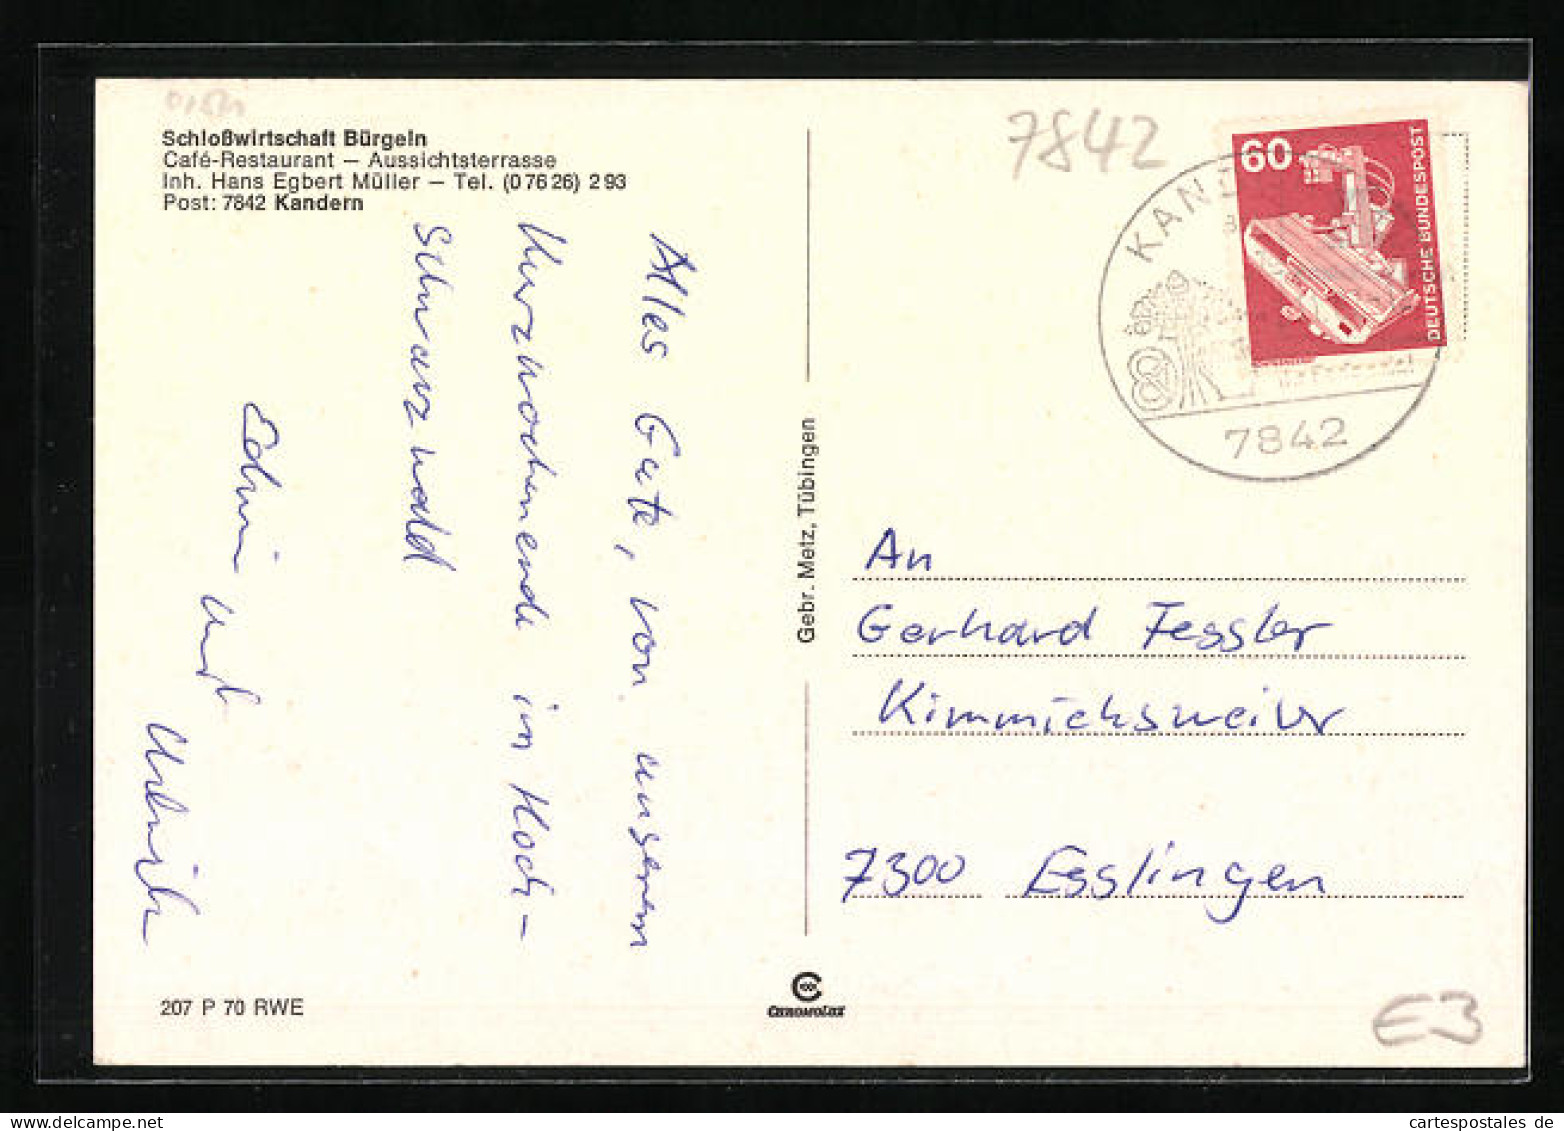 Schloßwirtschaft Bürgeln
Café-Restaurant – Aussichtsterrasse
Inh. Hans Egbert Müller – Tel. (0 76 26) 2 93
Post: 7842 Kandern
Alles Gute, von unserem
Kurzwochenende im Hoch-
schwarzwald
Edwin und
Ulrich
207 P 70 RWE
Gebr. Metz, Tübingen
CHROMOLUX
7842
60
DEUTSCHE BUNDESPOST
KAND
7842
An
Gerhard Fessler
Kimmichsweiler
7300 Esslingen
E3
cartespostales de